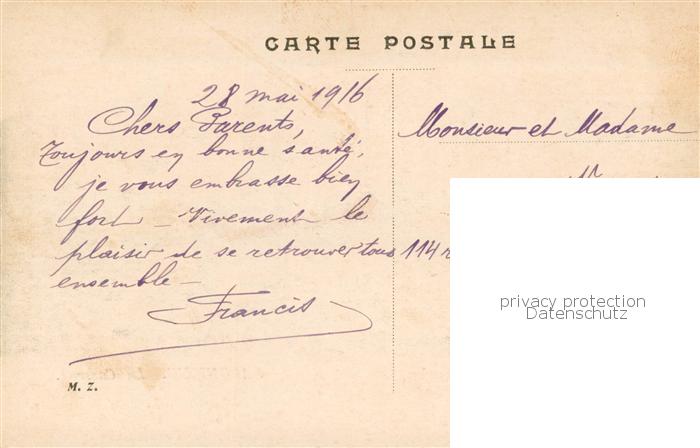 CARTE POSTALE
28 mai 1916
Chers Parents,
Toujours en bonne santé,
je vous embrasse bien
fort _ Vivement le
plaisir de se retrouver tous
ensemble _
Francis
M. Z.
Monsieur et Madame
114
privacy protection
Datenschutz